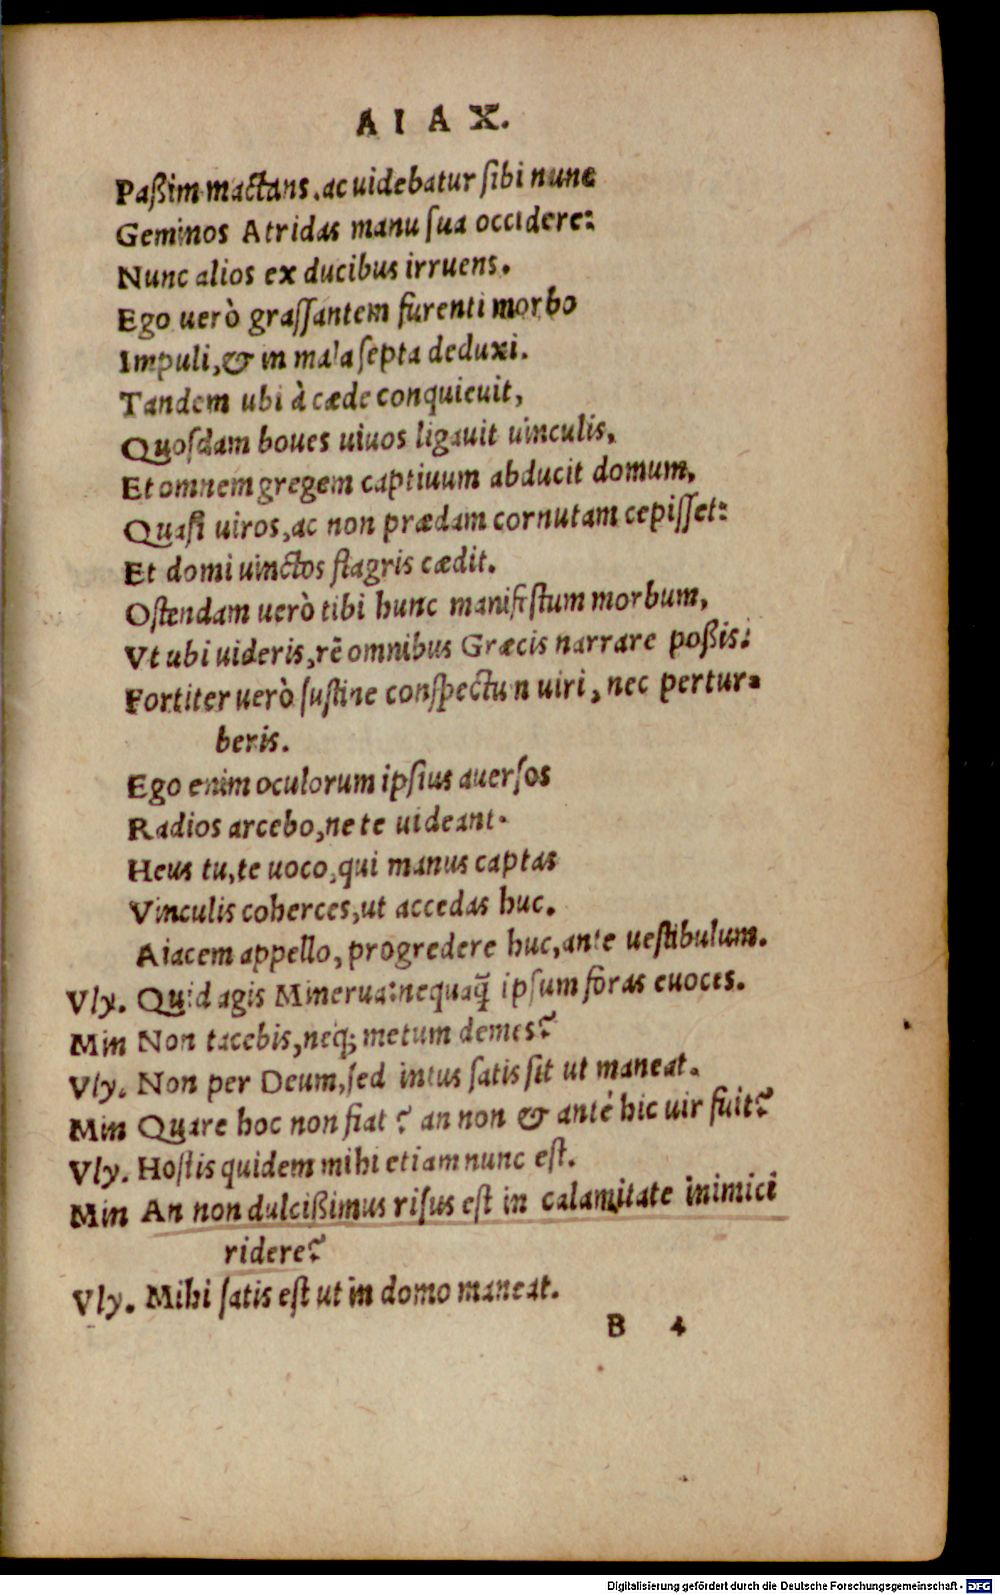 AIAX.
Paßim mactans, ac uidebatur sibi nunc
Geminos Atridas manu sua occidere:
Nunc alios ex ducibus irruens.
Ego uerò grassantem furenti morbo
Impuli, & in mala septa deduxi.
Tandem ubi à cæde conquieuit,
Quosdam boues uiuos ligauit uinculis,
Et omnem gregem captiuum abducit domum,
Quasi uiros, ac non prædam cornutam cepisset:
Et domi uinctos flagris cædit.
Ostendam uerò tibi hunc manifestum morbum,
Vt ubi uideris, rē omnibus Græcis narrare poßis:
Fortiter uerò sustine conspectun uiri, nec pertur-
beris.
Ego enim oculorum ipsius auersos
Radios arcebo, ne te uideant.
Heus tu, te uoco, qui manus captas
Vinculis coherces, ut accedas huc.
Aiacem appello, progredere huc, ante uestibulum.
Vly. Quid agis Minerua: nequaq̃ ipsum foras euoces.
Min Non tacebis, neq; metum demes?
Vly. Non per Deum, sed intus satis sit ut maneat.
Min Quare hoc non fiat? an non & antè hic uir fuit?
Vly. Hostis quidem mihi etiam nunc est.
Min An non dulcißimus risus est in calamitate inimici
ridere?
Vly. Mihi satis est ut in domo maneat.
B 4
Digitalisierung gefördert durch die Deutsche Forschungsgemeinschaft - DFG